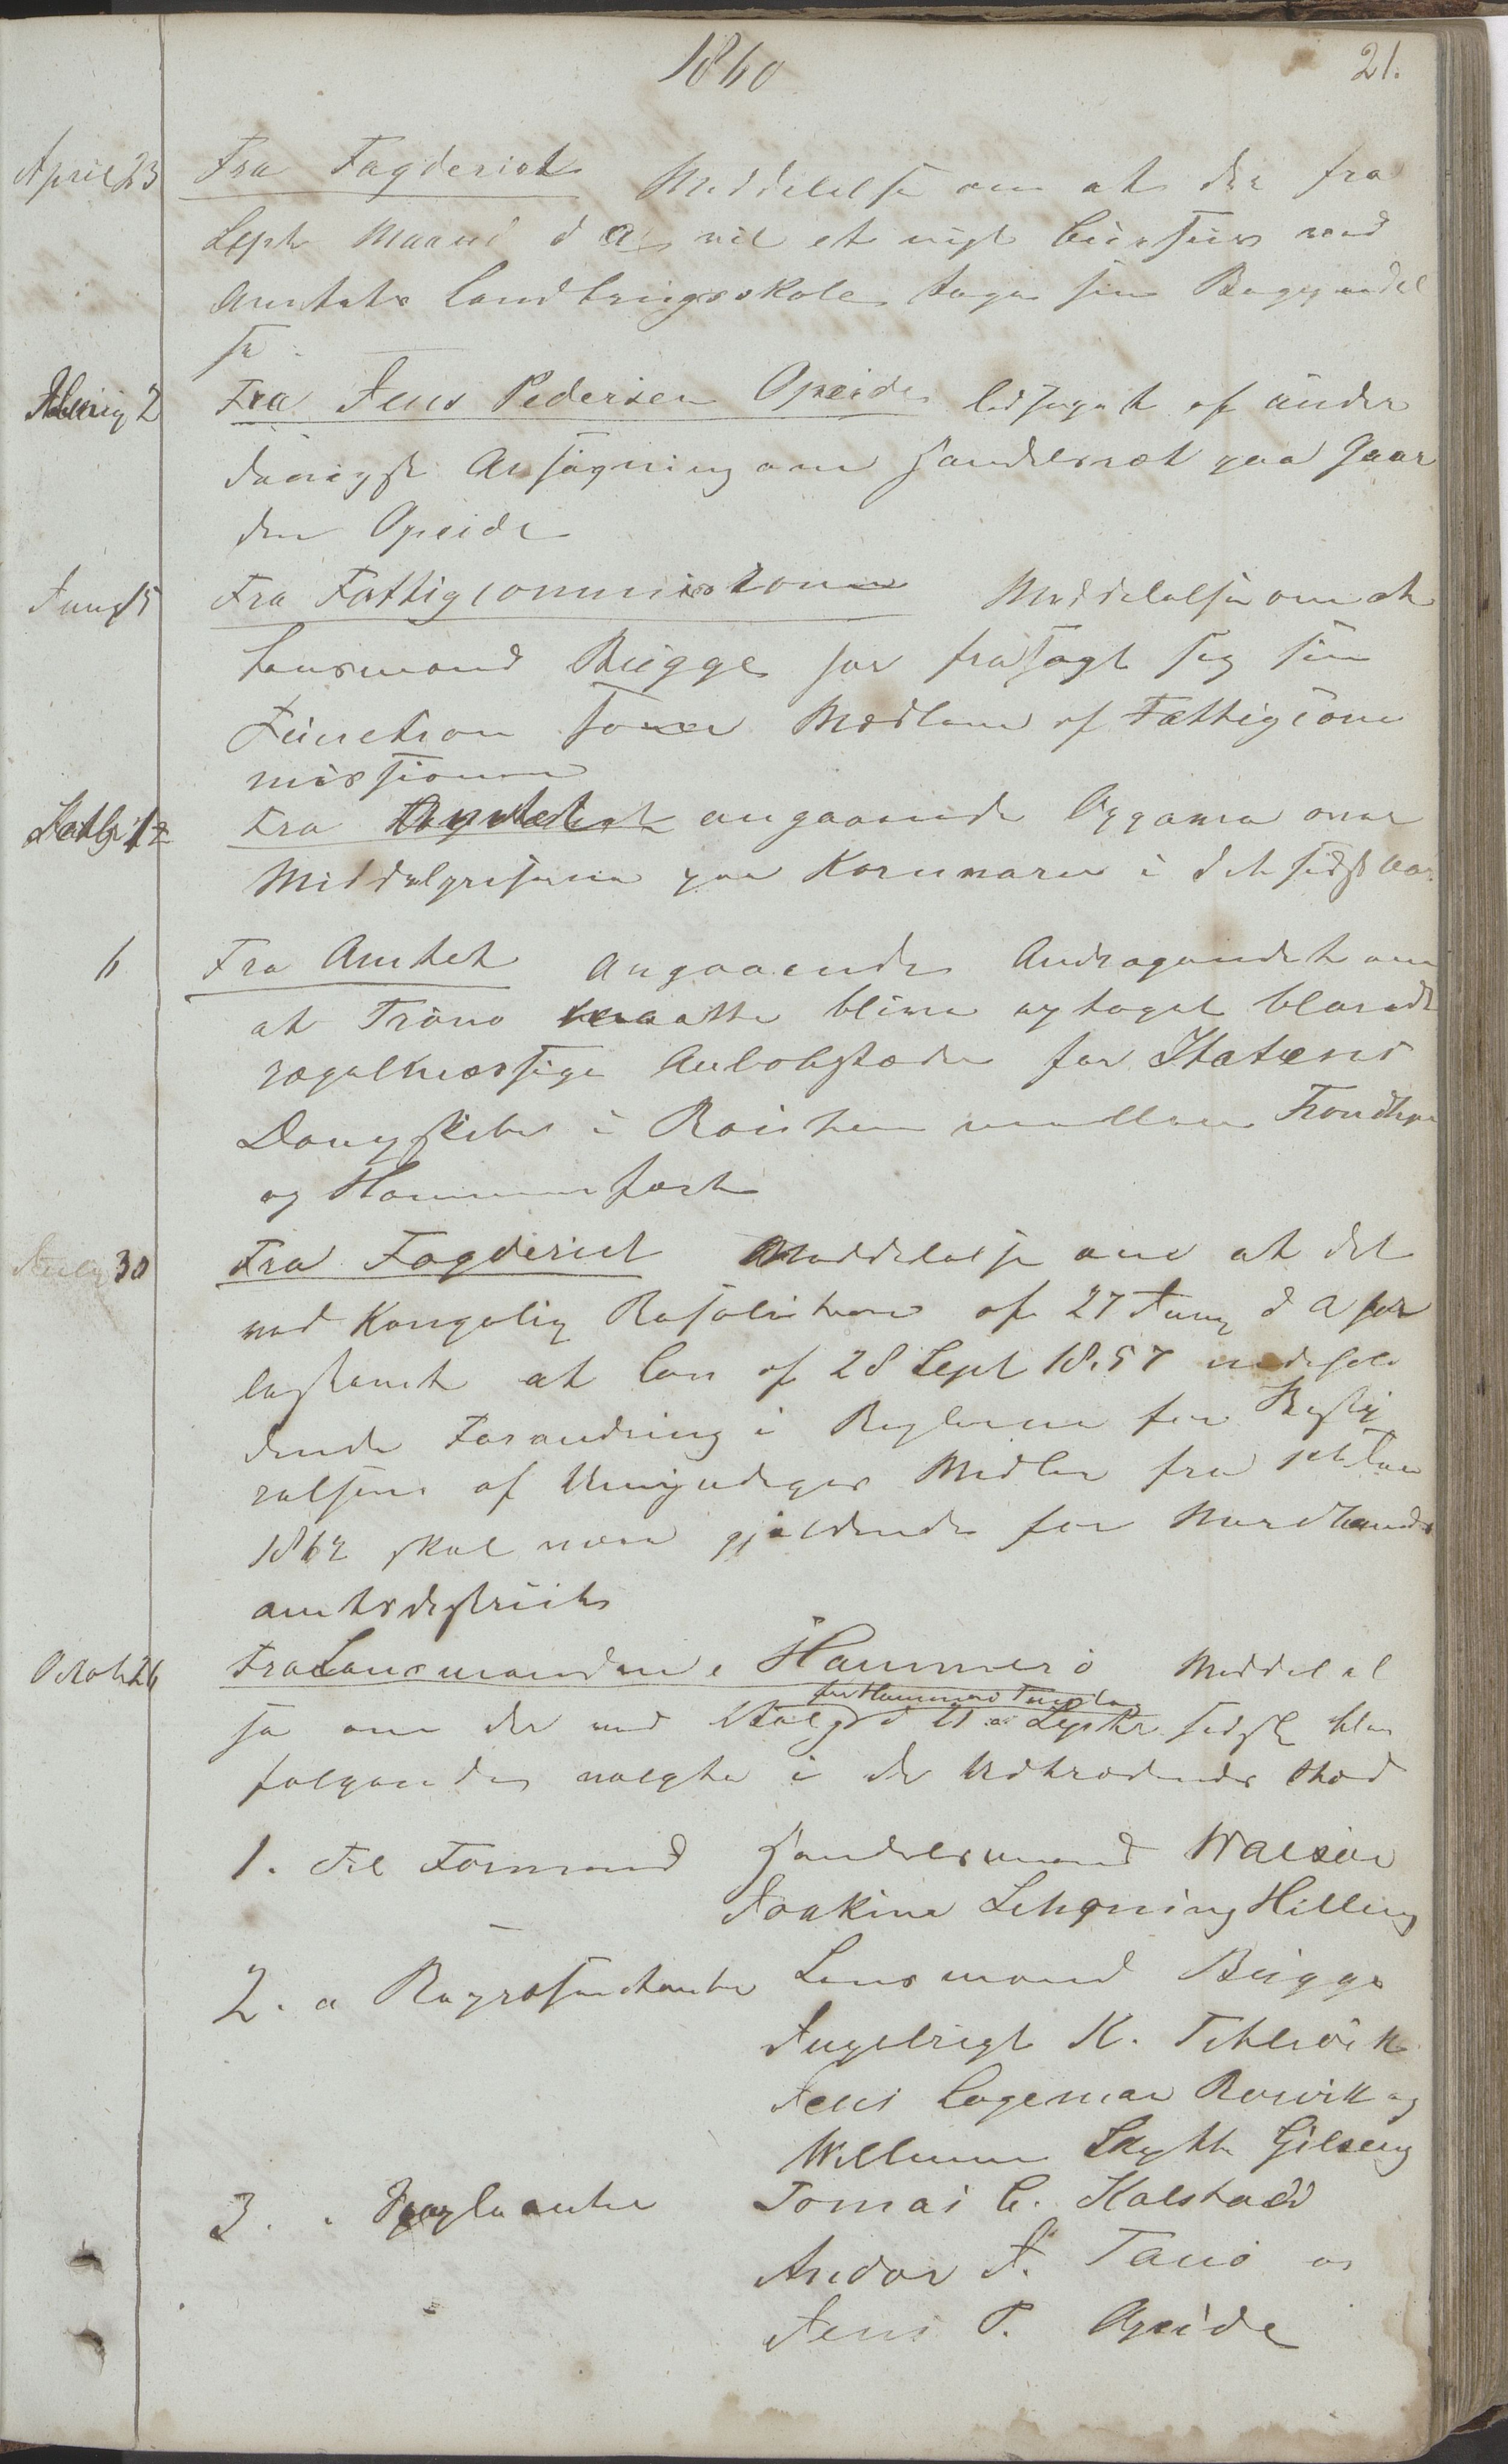 1860
21.
April 23 Fra Fogderiet Meddelelse om at der fra
Sept Maaned d A vil et nyt Cursus ved
Amtets Landbrugsskole tage sin Begyndel
se.
2 Fra Jens Pedersen Opeide ledsaget af under
danigst Ansøgning om Handelsret paa Gaar
den Opeide
Juny 5 Fra Fattigcommissionen Meddelelse om at
Lensmand Bugge har frasagt sig sin
Function som Medlem af Fattigcom
missionen
Fra angaaende Opgave over
Middelpriserne paa Kornvarer i det sidste Aar.
6 Fra Amtet angaaende Andragendet om
at Tranø maatte blive optaget blandt
regelmæssige Anlobsteder for Statens
Dampskibe i Routen mellem Trondhjem
og Hammerfest
July 30 Fra Fogderiet Meddelelse om at det
ved Kongelig Resolution af 27 Juny d A er
bestemt at Lov af 28 Sept 1857 indehol
dende Forandring i Reglerne for Besty
relsen af Umyndiges Midler fra 1ste Jan
1862 skal være gjeldende for Nordlands
amtsdistrict
October 26 Fra Lensmanden i Hammerø Meddelel
for Hammerø Tinglag
se om der ved Valg d 11 Septbr sidst blev
følgende valgte i de Udtrædendes Sted
1. Til Formend Handelsmand Walsøe
Joakim Schøning Hilling
2. a Representanter Lensmand Bugge
Ingebrigt K. Tilthvik
Jens Cogemar Rørvik og
Willum Skytte
3. " Suppleanter Tomas C. Kalstad
Andor J. Tanø og
Jens P. Opeide